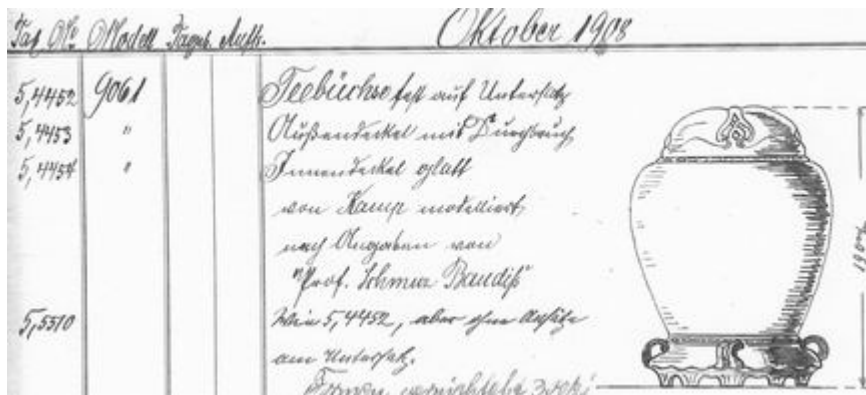 Taf. No Modell Tagub. Auftr. Oktober 1908
5,4452 9061 Teebüchse fest auf Untersatz
5,4453 " Außendeckel mit Durchbruch
5,4454 " Innendeckel glatt
von Kamp modelliert
nach Angaben von
"Prof. Schmuz Baudiß"
5,5510 Wie 5,4452, aber ohne Ansätze
am Untersatz.
Formen vernichtet